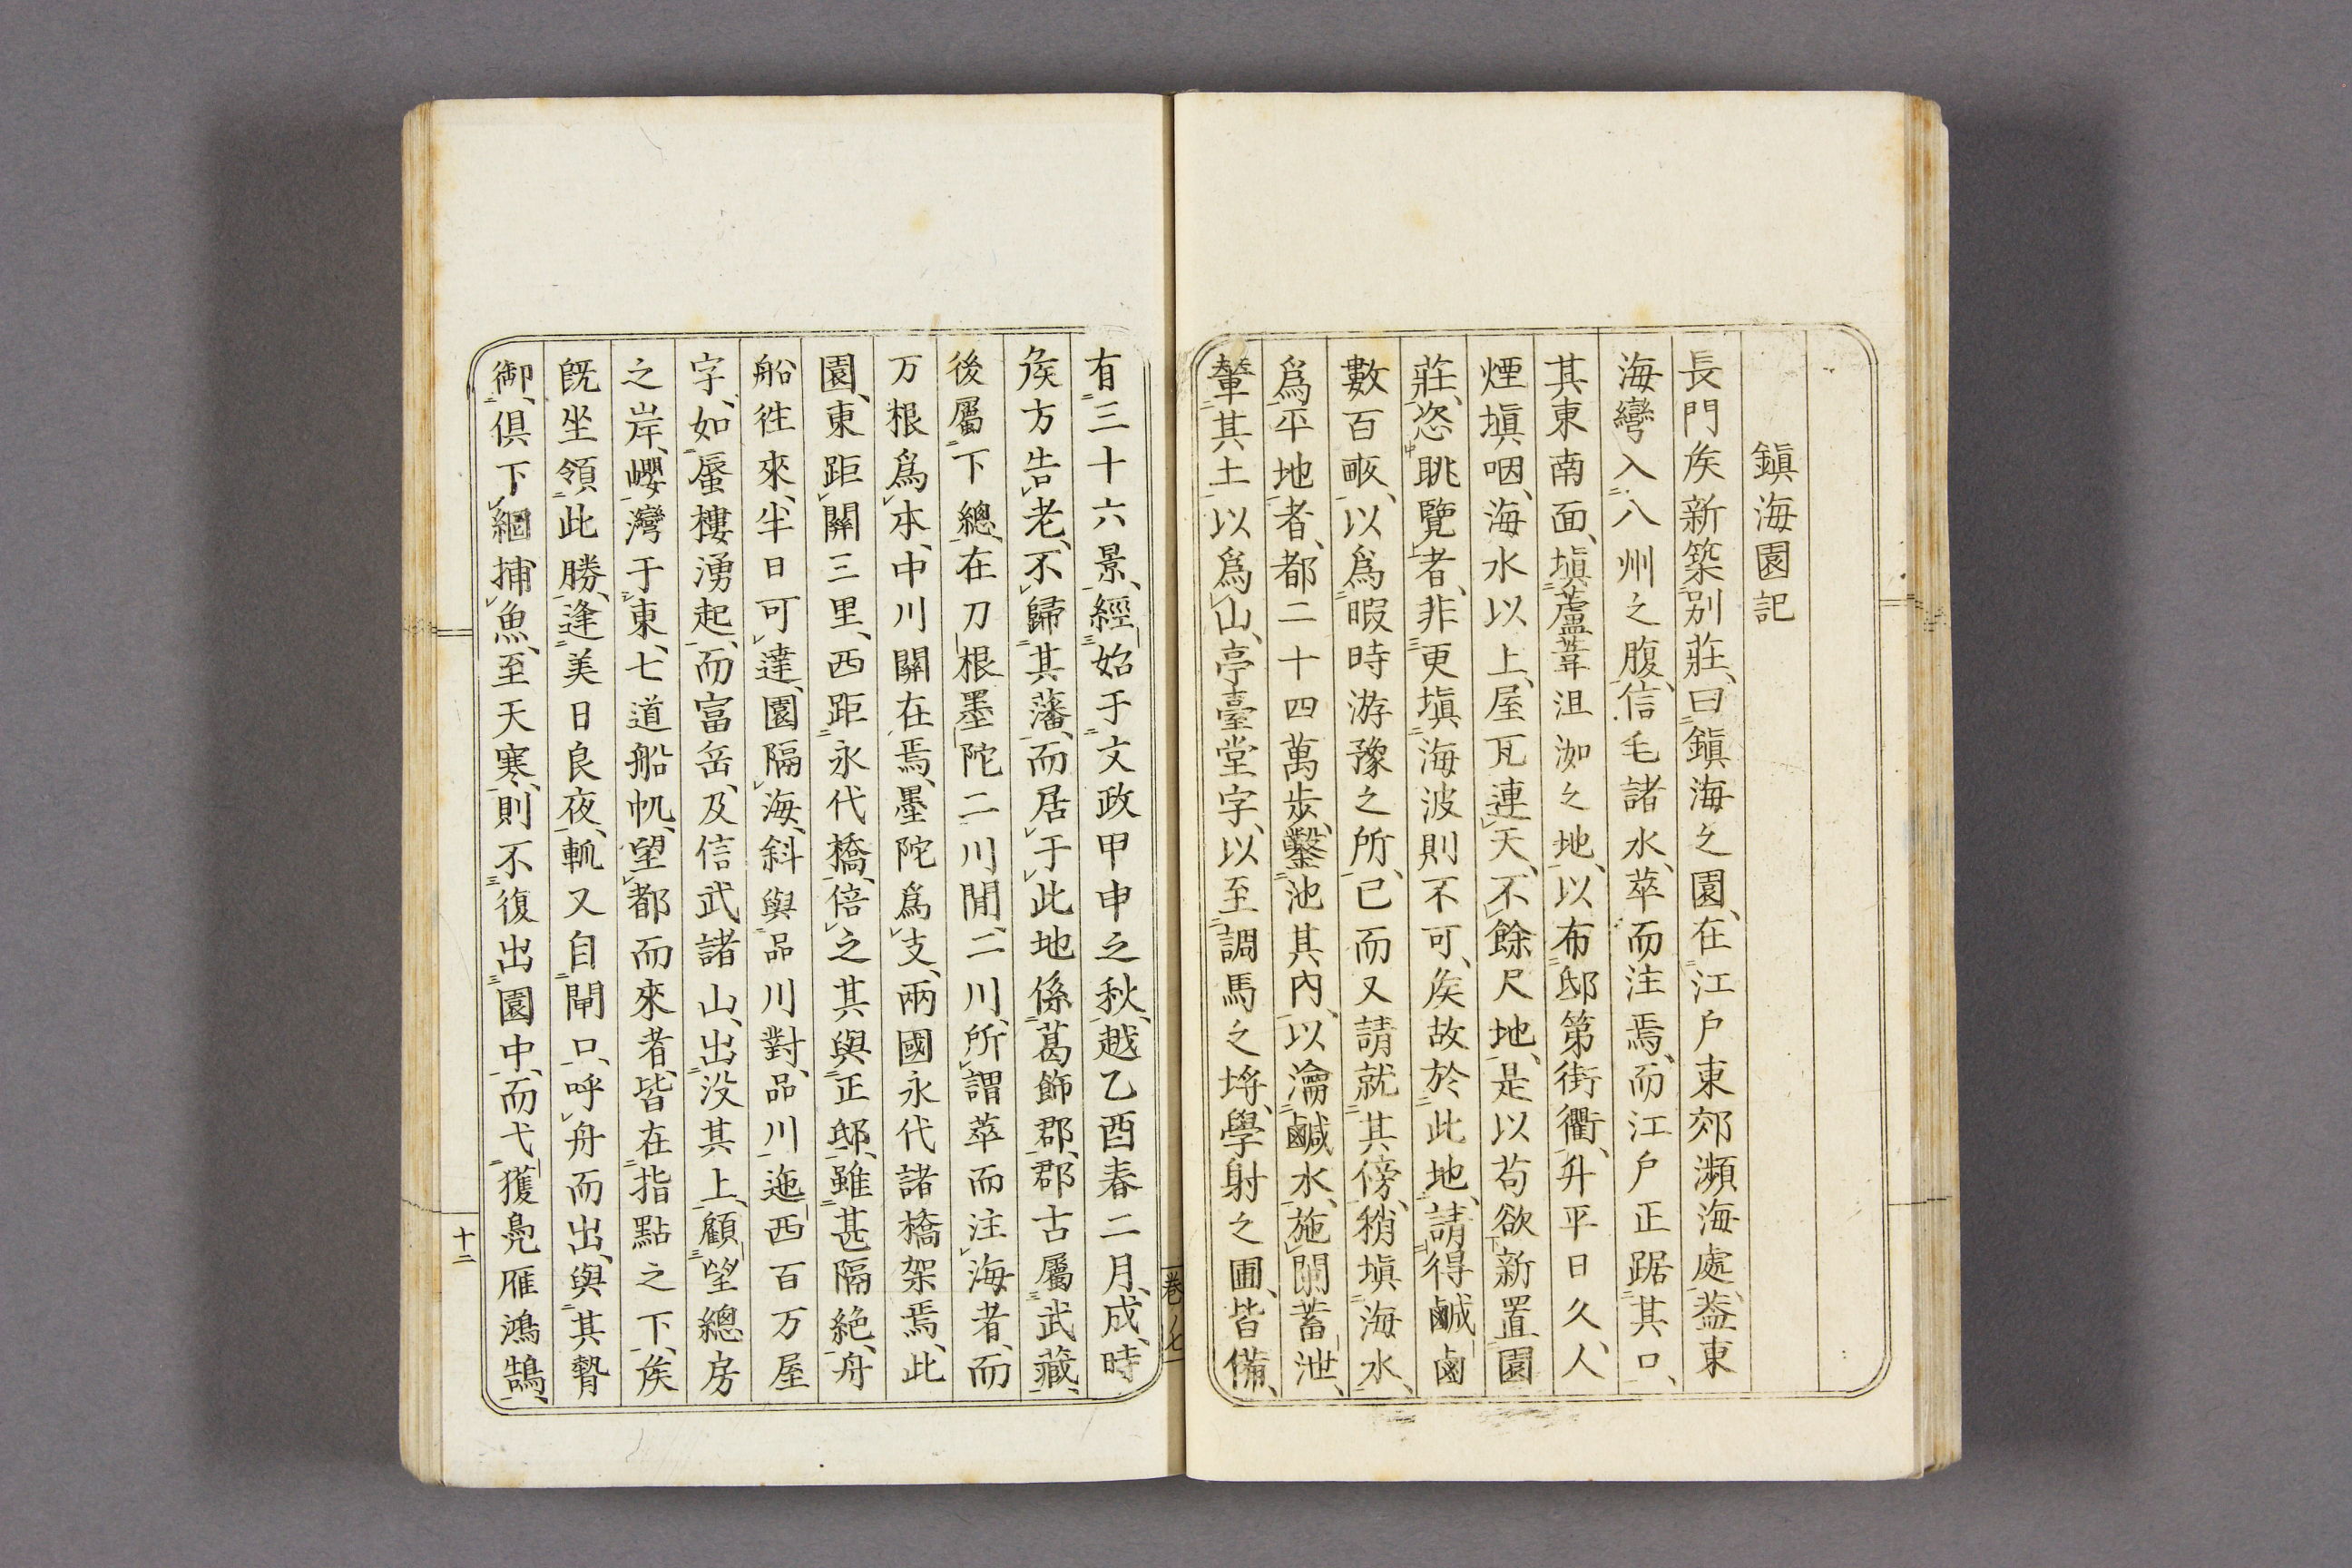 鎭海園記
長門矦新築別莊、曰鎭海之園、在江户東郊瀕海處、葢東
海彎入八州之腹、信毛諸水、萃而注焉、而江户正踞其口、
其東南面、塡蘆葦沮洳之地、以布邸第街衢、升平日久、人
煙塡咽、海水以上、屋瓦連天、不餘尺地、是以苟欲新置園
莊、恣眺覽者、非更塡海波則不可、矦故於此地、請得鹹鹵
數百畝、以爲暇時游豫之所、已而又請就其傍、稍塡海水、
爲平地者、都二十四萬歩、鑿池其內、以瀹鹹水、施閘蓄泄、
輦其土以爲山、亭臺堂宇、以至調馬之埒、學射之圃、皆備、
有三十六景、經始于文政甲申之秋、越乙酉春二月、成、時
矦方告老、不歸其藩、而居于此地係葛飾郡、郡古屬武藏、
後屬下總、在刀根墨陀二川閒、二川、所謂萃而注海者、而
万根爲本、中川關在焉、墨陀爲支、兩國永代諸橋架焉、此
園、東距關三里、西距永代橋、倍之其與正邸、雖甚隔絶、舟
船徃來、半日可達、園隔海、斜與品川對、品川迤西百万屋
字、如蜃樓湧起、而富岳、及信武諸山、出没其上、顧望總房
之岸、巊灣于東、七道船帆、望都而來者、皆在指點之下、矦
旣坐領此勝、逢美日良夜、輒又自閘口、呼舟而出、與其贄
御、倶下綱捕魚、至天寒、則不復出園中、而弋獲鳧雁鴻鵠、
巻ノ七
十二